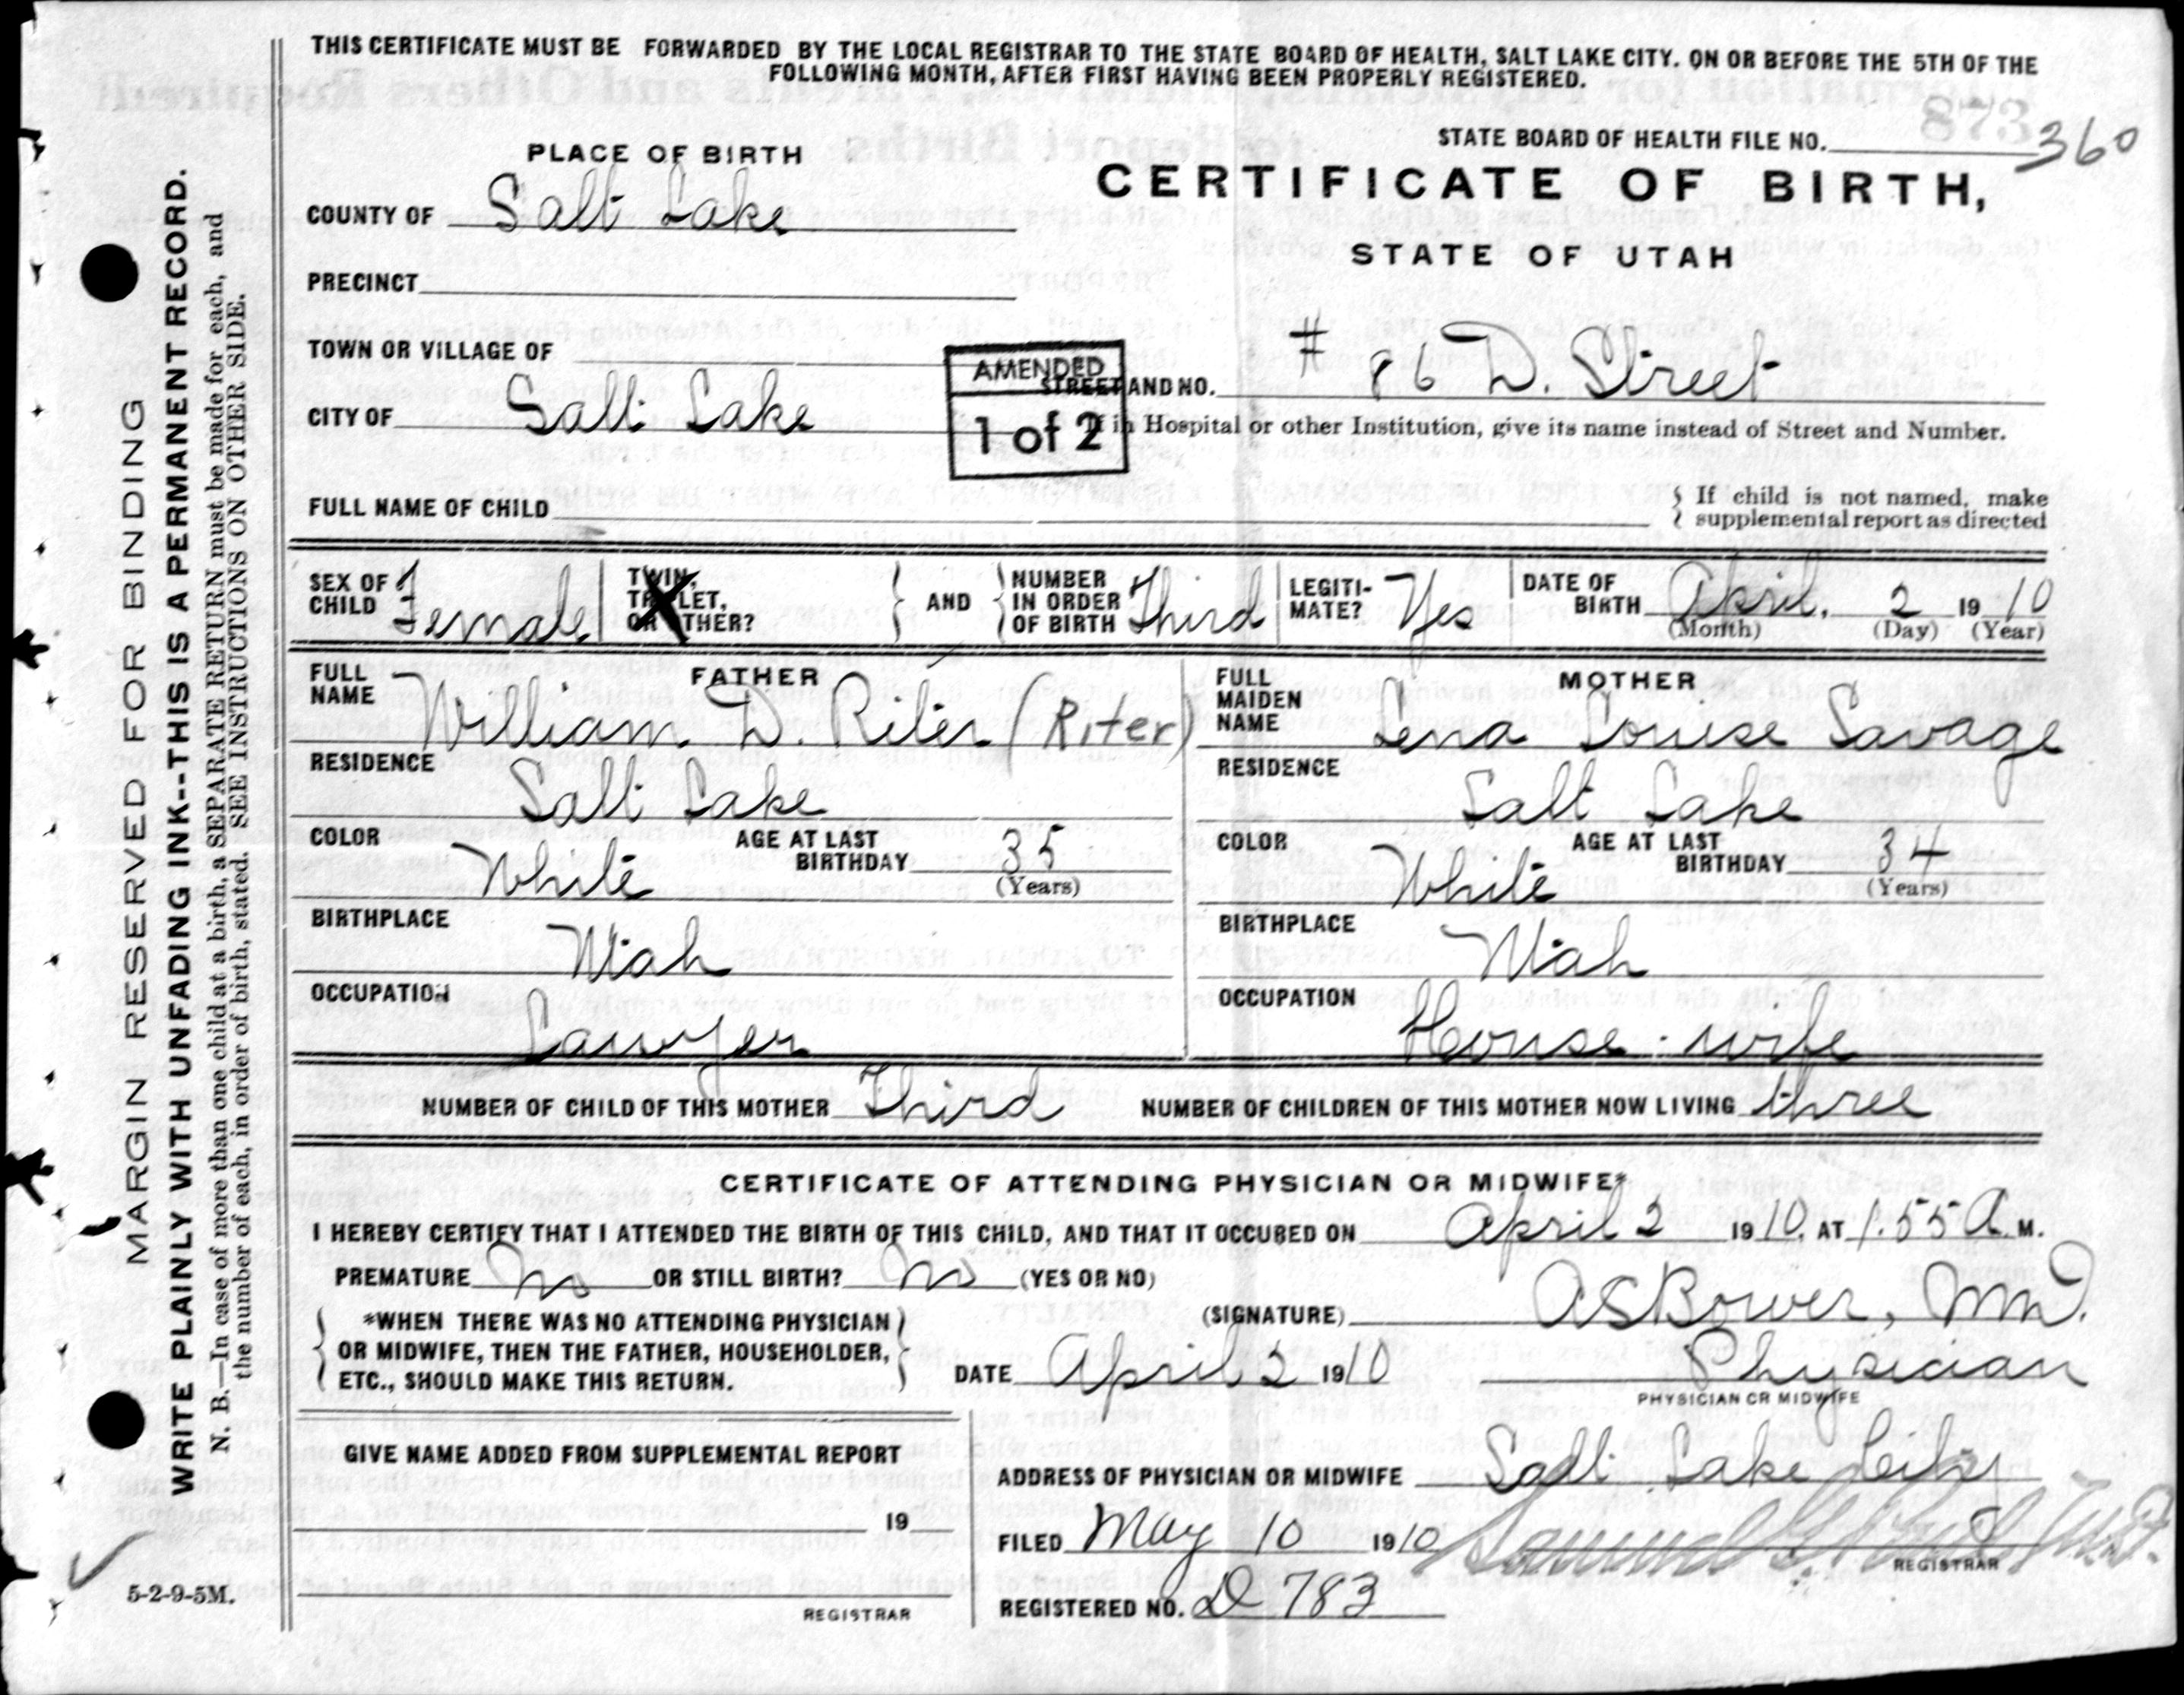 THIS CERTIFICATE MUST BE FORWARDED BY THE LOCAL REGISTRAR TO THE STATE BOARD OF HEALTH, SALT LAKE CITY. ON OR BEFORE THE 5TH OF THE
FOLLOWING MONTH, AFTER FIRST HAVING BEEN PROPERLY REGISTERED.
873
STATE BOARD OF HEALTH FILE NO. 360
PLACE OF BIRTH
CERTIFICATE OF BIRTH,
STATE OF UTAH
COUNTY OF Salt Lake
PRECINCT
TOWN OR VILLAGE OF
AMENDED
1 of 2
STREET AND NO. # 86 D. Street
CITY OF Salt Lake
If in Hospital or other Institution, give its name instead of Street and Number.
FULL NAME OF CHILD
If child is not named, make
supplemental report as directed
SEX OF CHILD Female
TWIN, TRIPLET, OR OTHER?
AND
NUMBER IN ORDER OF BIRTH Third
LEGITI-MATE? Yes
DATE OF BIRTH April, 2 1910
(Month) (Day) (Year)
FATHER
FULL NAME William D. Riter (Riter)
RESIDENCE
Salt Lake
COLOR White AGE AT LAST BIRTHDAY 35
(Years)
BIRTHPLACE
Utah
OCCUPATION
Lawyer
MOTHER
FULL MAIDEN NAME Lena Louise Savage
RESIDENCE
Salt Lake
COLOR White AGE AT LAST BIRTHDAY 34
(Years)
BIRTHPLACE
Utah
OCCUPATION
House-wife
NUMBER OF CHILD OF THIS MOTHER Third NUMBER OF CHILDREN OF THIS MOTHER NOW LIVING three
CERTIFICATE OF ATTENDING PHYSICIAN OR MIDWIFE*
I HEREBY CERTIFY THAT I ATTENDED THE BIRTH OF THIS CHILD, AND THAT IT OCCURED ON April 2 1910, AT 1.55 A. M.
PREMATURE No OR STILL BIRTH? No (YES OR NO)
*WHEN THERE WAS NO ATTENDING PHYSICIAN
OR MIDWIFE, THEN THE FATHER, HOUSEHOLDER,
ETC., SHOULD MAKE THIS RETURN.
(SIGNATURE) AS Bower, MD.
DATE April 2 1910
Physician
PHYSICIAN OR MIDWIFE
GIVE NAME ADDED FROM SUPPLEMENTAL REPORT
19
REGISTRAR
ADDRESS OF PHYSICIAN OR MIDWIFE Salt Lake City
FILED May 10 1910 Samuel G. Paul M.D.
REGISTRAR
REGISTERED NO. D 783
MARGIN RESERVED FOR BINDING
WRITE PLAINLY WITH UNFADING INK--THIS IS A PERMANENT RECORD.
N. B.—In case of more than one child at a birth, a SEPARATE RETURN must be made for each, and
the number of each, in order of birth, stated. SEE INSTRUCTIONS ON OTHER SIDE.
5-2-9-5M.